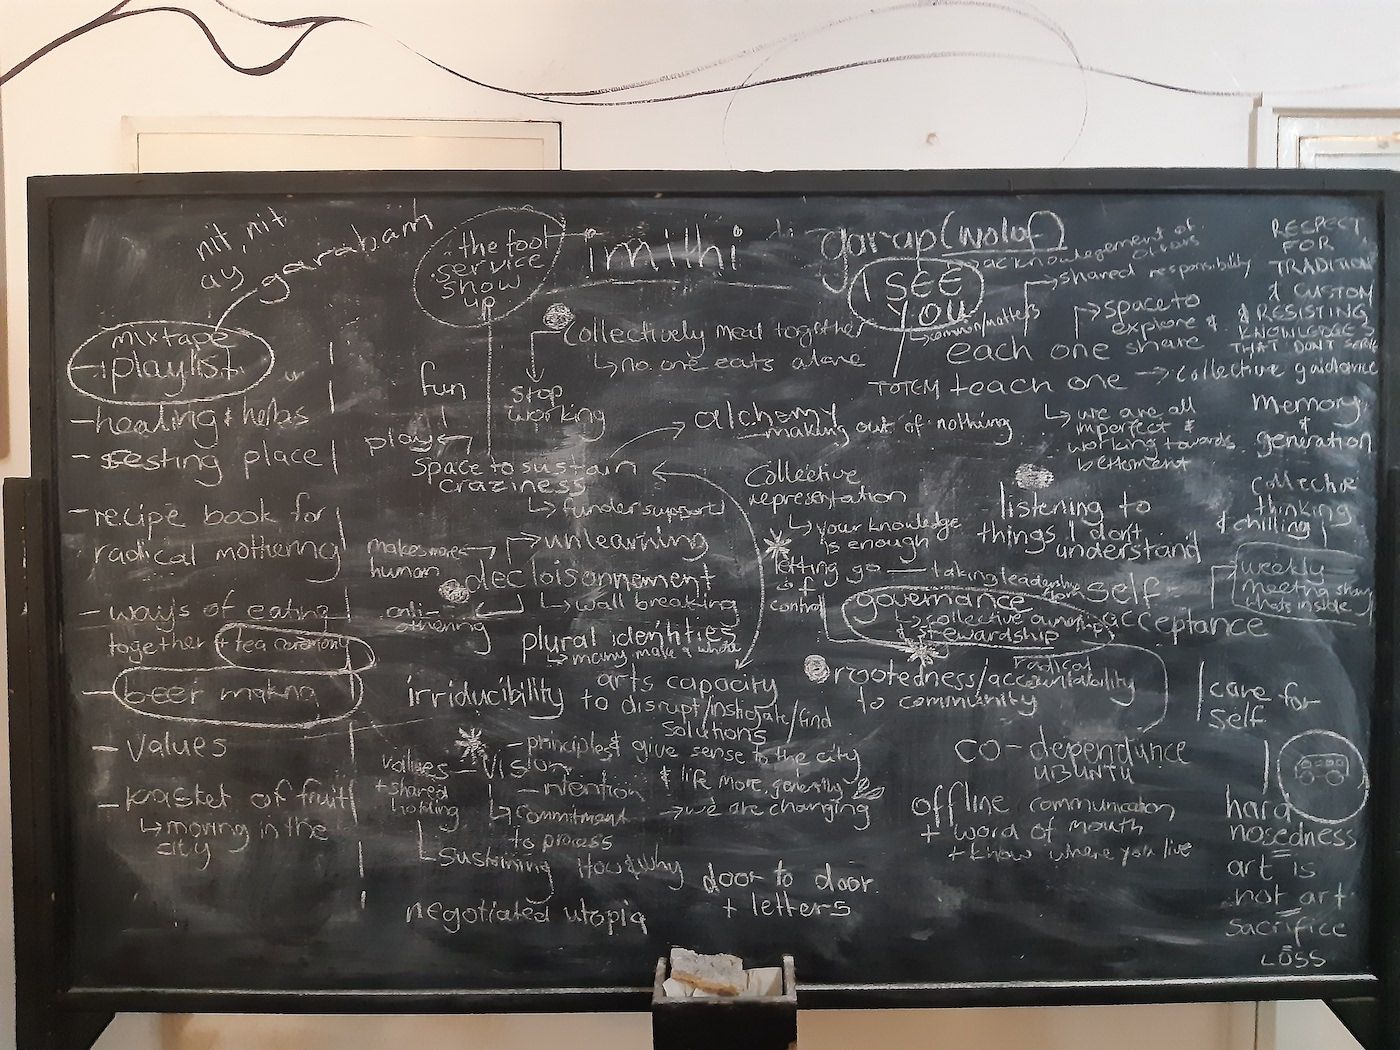 nit, nit
ay garabam
mixtape
+ playlist
- healing + herbs
- resting place
- recipe book for
radical mothering
- ways of eating
together + tea ceremony
- beer making
- values
- basket of fruit
↳ moving in the
city
the foot
service
show
up
imithi
garap (wolof)
I SEE
YOU
→ acknowledgement of
→ shared responsibility
↳ common/matters
TOTEM
collectively meal together
↳ no one eats alone
stop
working
fun
play
space to sustain
craziness
↳ funder support
alchemy
making out of nothing
each one share
teach one → collective guidance
space to
explore &
↳ we are all
imperfect &
working towards
betterment
RESPECT
FOR
TRADITION
& CUSTOM
& RESISTING
KNOWLEDGES
THAT DON'T SERVE
memory
&
generation
collective
thinking
& chilling
weekly
meeting
whats inside
collective
representation
↳ your knowledge
is enough
listening to
things I don't
understand
makes more
human
unlearning
decloisonnement
↳ wall breaking
anti-
othering
plural identities
↳ many, make a whole
letting go — taking leadership
of
control
governance
↳ collective ownership
& stewardship
self
acceptance
irriducibility
arts capacity
to disrupt/instigate/find
solutions
rootedness/radical
accountability
to community
care for
self
values
+ shared
holding
- vision
- principles & give sense to the city
& life more generally
→ we are changing
- intention
↳ commitment
to process
sustaining
How & why
negotiated utopia
door to door
+ letters
co-dependance
UBUNTU
offline communication
+ word of mouth
+ know where you live
hard
nosedness
=
art is
not art
=
sacrifice
=
LOSS